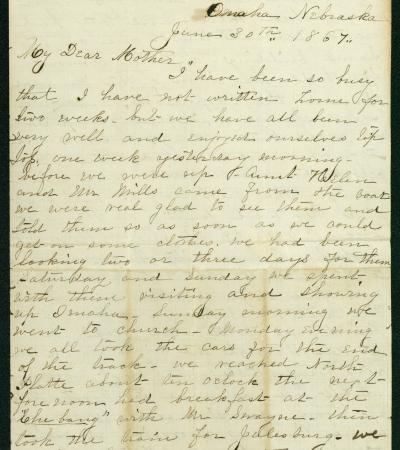 Omaha Nebraska
June 30th 1867.
My Dear Mother
I have been so busy
that I have not written home for
two weeks. but we have all been
very well and enjoyed ourselves tip
top. one week yesterday morning
before we were up Aunt Helen
and Mr Mills came from the boat
we were real glad to see them and
told them so as soon as we could
get on some clothes. we had been
looking two or three days for them
Saturday and Sunday we spent
with them visiting and showing
up Omaha. Sunday morning we
went to church - Monday evening
we all took the cars for the End
of the track - we reached North
Platte about ten oclock the next
forenoon had breakfast at the
"Chebang" with Mr Swayne. then
took the train for Julesburg - we